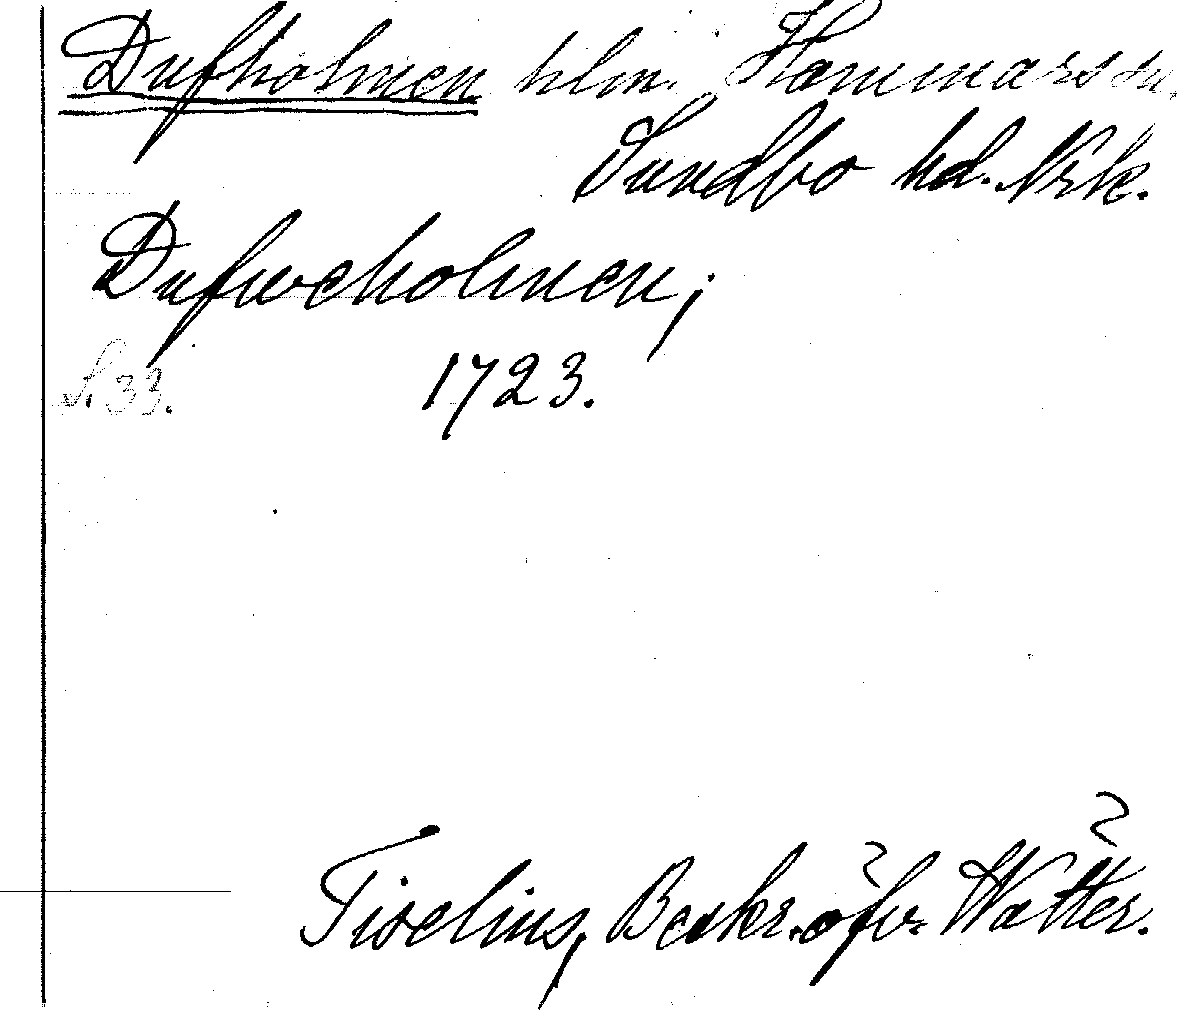 Dufholmen hlm. Hammars sn.
Sundbo hd. Nrk.
Dufweholmen;
S. 33. 1723.
Tiselius, Beskr. öfv. Wätter.